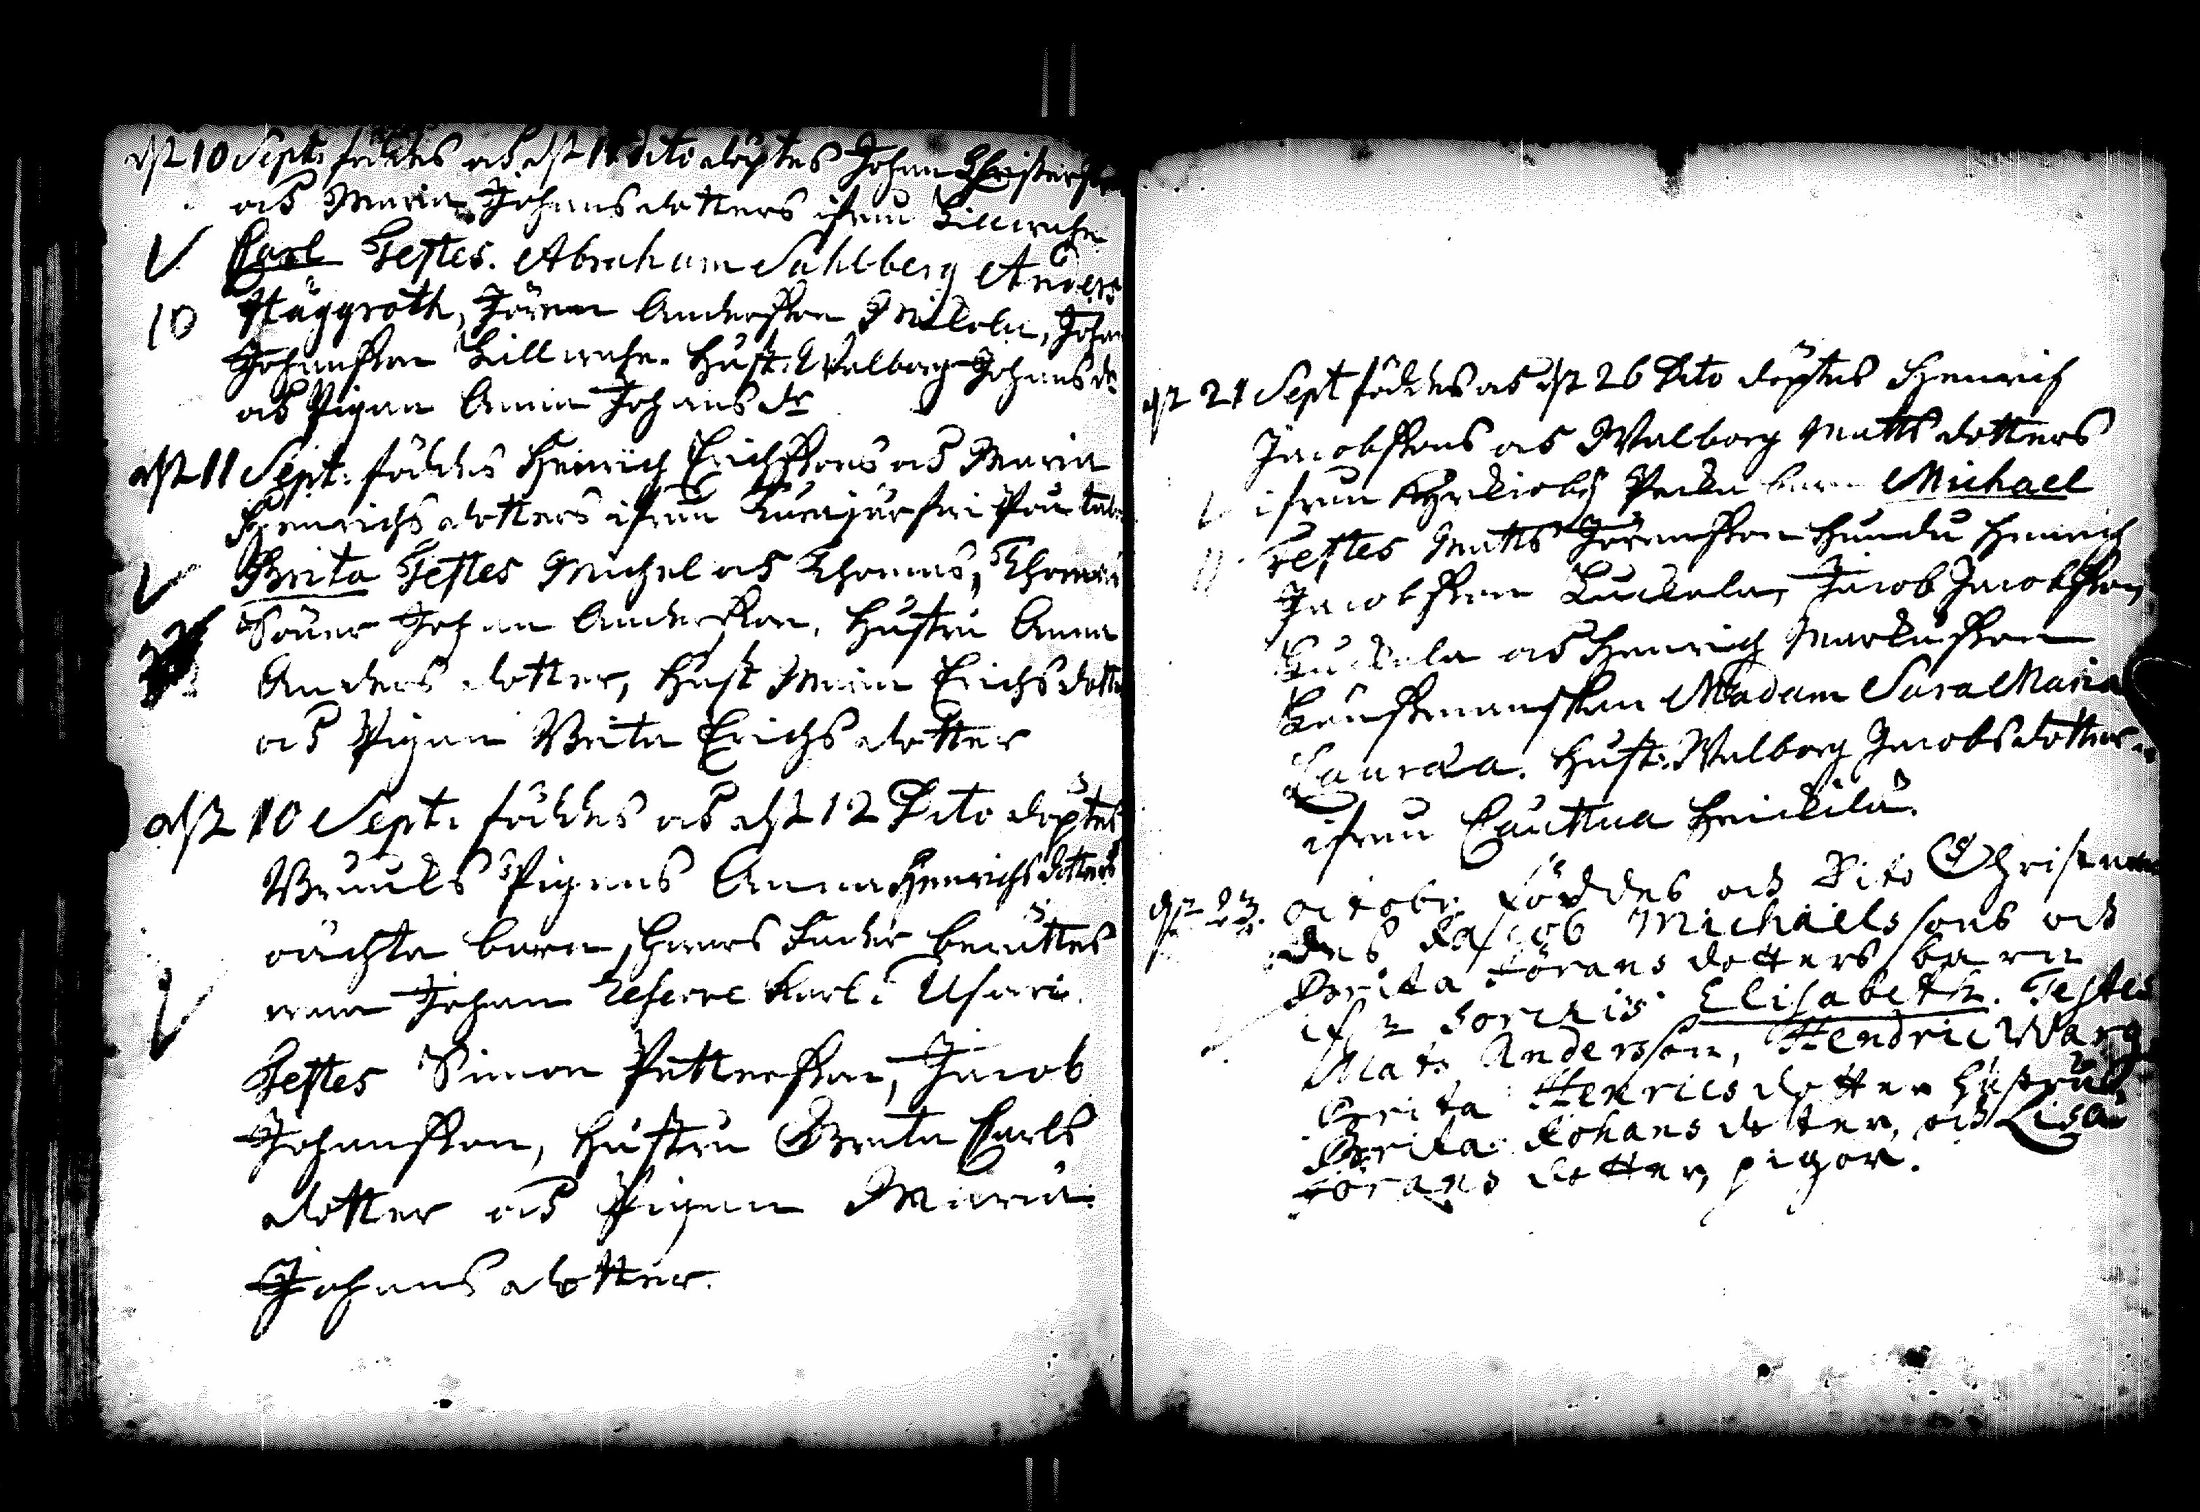 dht 10 Sept: föddes och dht 11 dito döptes Johan Christers
och Maria Johans dotters ifrån
Carl Testes. Abraham Sahlberg Anders
10 Häggroth, Jöran Andersson Johan
Johansson Hust: Walborg Johans dr
och Pigan Anna Johans dr
dht 11 Sept: föddes Henrich Erichssons och Maria
Henrichs dotters ifrån
Brita Testes Michel och Thomas, Thomæ
Söner Johan Andersson, Hustru Anna
Anders dotter, Hust Maria Erichs dotter
och Pigan Brita Erichs dotter
dht 10 Sept: föddes och dht 12 Dito döptes
Bruuks Pigans Anna Henrichs dotters
oächta barn, hwars fader berättes
wara Johan reserve karl i
Testes Simon Pettersson, Jacob
Johansson, Hustru Brita Carls
dotter och Pigan Maria
Johans dotter.
dht 21 Sept föddes och dht 26 Dito döptes Henrich
Jacobssons och Walborg Matts dotters
ifrån barn Michael
Testes Matts Jöransson Henrich
Jacobsson Jacob Jacobsson
och Henrich Markusson
Madam Sara Maria
Hust: Walborg Jacobs dotter
ifrån Cauttua
dht 23. octobr: föddes och Dito Christna
des Jacob Michaelssons och
Brita Jörans dotters barn
Elisabeth. Testes
Mats Andersson, Hendric Warg
Brita Henrics dotter Hustru
Brita Johans dotter, och Lisa
Jörans dotter, pigor.